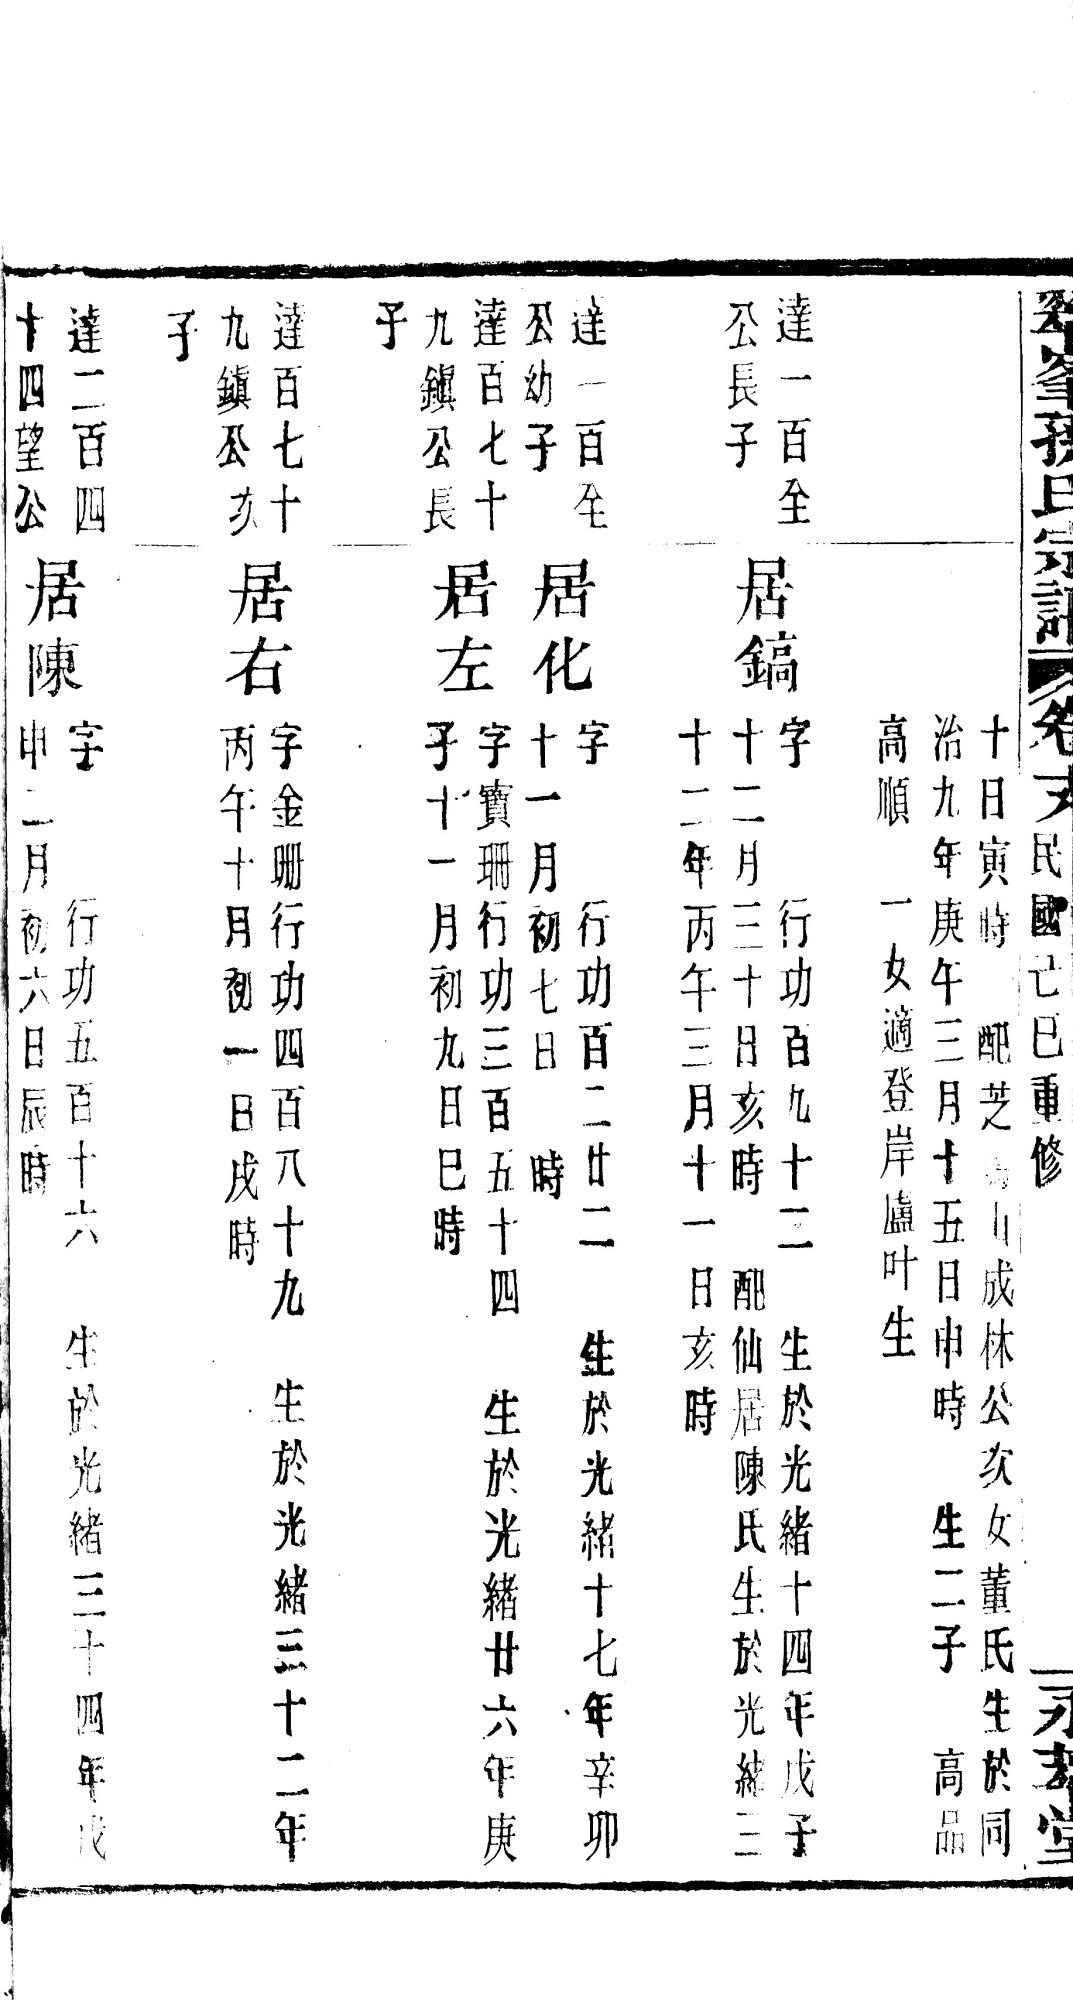 孫氏宗譜 卷 民國亡巳重修 堂
十日寅時 配芝山成林公次女董氏生於同
治九年庚午三月十五日申時 生二子 高品
高順 一女適登岸廬叶生
達一百全
公長子
居鎬
字 行功百九十二 生於光緒十四年戊子
十二月三十日亥時 配仙居陳氏生於光緒三
十二年丙午三月十一日亥時
達一百全
公幼子
居化
字 行功百二廿二 生於光緒十七年辛卯
十一月初七日 時
達百七十
九鎮公長
子
居左
字寶珊行功三百五十四 生於光緒廿六年庚
子十一月初九日巳時
達百七十
九鎮公次
子
居右
字金珊行功四百八十九 生於光緒三十二年
丙午十月初一日戌時
達二百四
十四望公
居陳
字 行功五百十六 生於光緒三十四年戊
申二月初六日辰時